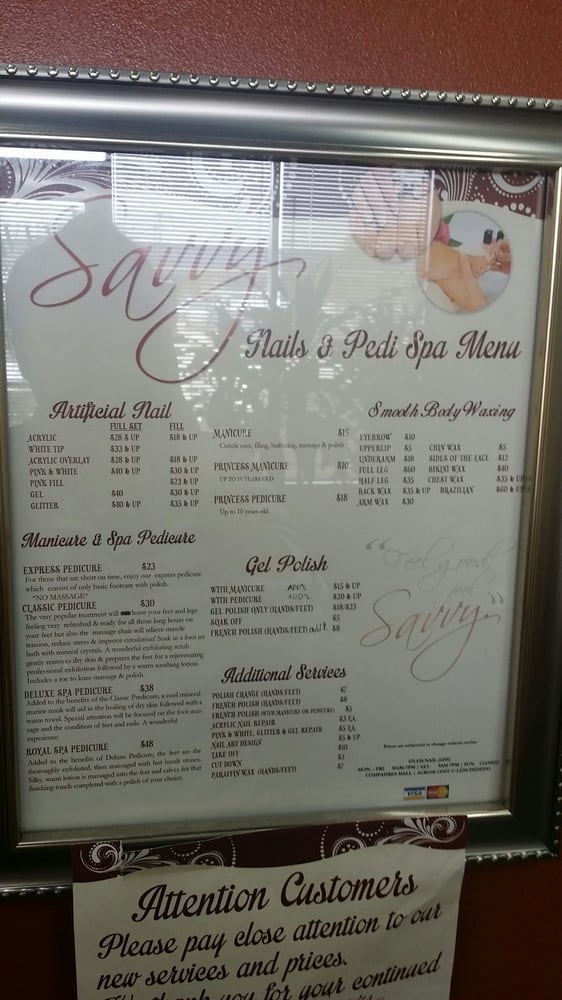 Savvy
Nails & Pedi Spa Menu
Artificial Nail
FULL SET FILL
ACRYLIC $28 & UP $18 & UP
WHITE TIP $33 & UP
ACRYLIC OVERLAY $28 & UP $18 & UP
PINK & WHITE $40 & UP $30 & UP
PINK FILL $23 & UP
GEL $40 $30 & UP
GLITTER $40 & UP $35 & UP
MANICURE $15
Cuticle care, filing, buffering, massage & polish
PRINCESS MANICURE $10
UP TO 10 YEARS OLD
PRINCESS PEDICURE $18
Up to 10 years old
Smooth Body Waxing
EYEBROW $10
UPPERLIP $5 CHIN WAX $5
UNDERARM $18 SIDES OF THE FACE $12
FULL LEG $60 BIKINI WAX $40
HALF LEG $35 CHEST WAX $35 & UP
BACK WAX $35 & UP BRAZILIAN $60 & UP
ARM WAX $30
Manicure & Spa Pedicure
EXPRESS PEDICURE $23
For those that are short on time, enjoy our express pedicure
which consist of only basic footcare with polish.
"NO MASSAGE"
CLASSIC PEDICURE $30
The very popular treatment will leave your feet and legs
feeling very refreshed & ready for all those long hours on
your feet but also the massage chair will relieve muscle
tension, reduce stress & improve circulation! Soak in a foot jet
bath with mineral crystals. A wonderful exfoliating scrub
gently removes dry skin & prepares the feet for a rejuvenating
professional exfoliation followed by a warm soothing lotion.
Includes a toe to knee massage & polish.
DELUXE SPA PEDICURE $38
Added to the benefits of the Classic Predicure, a cool mineral
marine mask will aid in the healing of dry skin followed with a
warm towel. Special attention will be focused on the foot mas-
sage and the condition of feet and nails. A wonderful
experience.
ROYAL SPA PEDICURE $48
Added to the benefits of Deluxe Pedicure, the feet are the
thoroughly exfoliated, then massaged with hot basalt stones.
Silky, warm lotion is massaged into the feet and calves for that
finishing touch completed with a polish of your choice.
Gel Polish
WITH MANICURE ADD'L $15 & UP
WITH PEDICURE ADD'L $20 & UP
GEL POLISH ONLY (HANDS/FEET) $18/$23
SOAK OFF $5
FRENCH POLISH (HANDS/FEET) add'l. $8
"Feel good,
feel
Savvy"
Additional Services
POLISH CHANGE (HANDS/FEET) $7
FRENCH POLISH (HANDS/FEET) $8
FRENCH POLISH (WITH MANICURE OR PEDICURE) $5
ACRYLIC NAIL REPAIR $3 EA.
PINK & WHITE, GLITTER & GEL REPAIR $5 EA.
NAIL ART DESIGN $5 & UP
TAKE OFF $10
CUT DOWN $3
PARAFFIN WAX (HAND/FEET) $7
Prices are subjected to change without notice.
MON. - FRI. 10AM-7PM | SAT. 9AM-7PM | SUN. CLOSED
COMPADRES MALL | ACROSS COST-U-LESS DEDEDO
VISA MasterCard
Attention Customers
Please pay close attention to our
new services and prices.
thank you for your continued